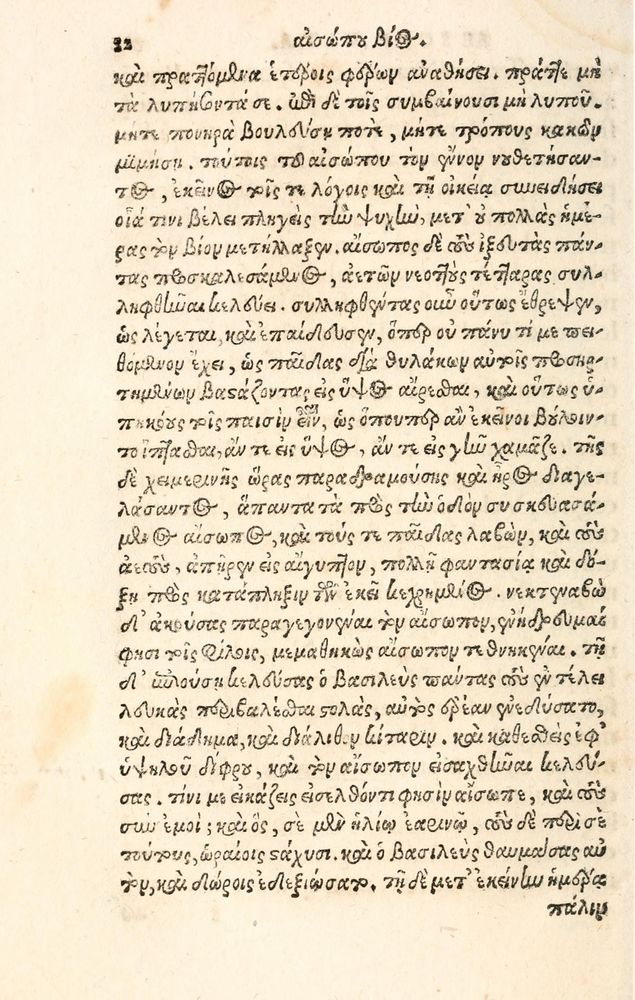 32 αἰσώπου βίος.
καὶ πραττόμενα ἑτέροις φέρων ἀναθήσει. πρᾶττε μὴ
τὰ λυπήσοντά σε. ἐπὶ δὲ τοῖς συμβαίνουσι μὴ λυποῦ.
μήτε πονηρὰ βουλεύσῃ ποτὲ, μήτε τρόπους κακῶν
μιμήσῃ. τούτοις τοῦ αἰσώπου τὸν ἔννον νουθετήσαν-
τος, ἐκεῖνος τοῖς τε λόγοις καὶ τῇ οἰκείᾳ συνειδήσει
οἷά τινι βέλει πληγεὶς τὴν ψυχὴν, μετ' οὐ πολλὰς ἡμέ-
ρας τὸν βίον μετήλλαξεν. αἴσωπος δὲ τοὺς ἰξευτὰς πάν-
τας προσκαλεσάμενος, ἀετῶν νεοττοὺς τέτταρας συλ-
ληφθῆναι κελεύει. συλληφθέντας οὖν οὕτως ἔθρεψεν,
ὡς λέγεται, καὶ ἐπαίδευσεν, ὅπερ οὐ πάνυ τι με πει-
θόμενον ἔχει, ὡς παῖδας διὰ θυλάκων αὐτοῖς προσηρ-
τημένων βαστάζοντας εἰς ὕψος αἴρεσθαι, καὶ οὕτως ὑ-
πηκόους τοῖς παισὶν εἶναι, ὡς ὅπουπερ ἂν ἐκεῖνοι βούλοιν-
το ἵπτασθαι, ἄν τε εἰς ὕψος, ἄν τε εἰς γῆν χαμᾶζε. τῆς
δὲ χειμερινῆς ὥρας παραδραμούσης καὶ ἦρος διαγε-
λάσαντος, ἅπαντα τὰ πρὸς τὴν ὁδὸν συσκευασά-
μενος αἴσωπος, καὶ τούς τε παῖδας λαβὼν, καὶ τοὺς
ἀετοὺς, ἀπῆρεν εἰς αἴγυπτον, πολλῇ φαντασίᾳ καὶ δό-
ξῃ πρὸς κατάπληξιν τῶν ἐκεῖ κεχρημένος. νεκτεναβὼ
δ' ἀκούσας παραγεγονέναι τὸν αἴσωπον, ἐνήδρευμαί
φησι τοῖς φίλοις, μεμαθηκὼς αἴσωπον τεθνηκέναι. τῇ
δ' ἐπιούσῃ κελεύσας ὁ βασιλεὺς πάντας τοὺς ἐν τέλει
λευκὰς περιβαλέσθαι στολὰς, αὐτὸς ἐρέαν ἐνεδύσατο,
καὶ διάδημα, καὶ διάλιθον κίταριν. καὶ καθεσθεὶς ἐφ'
ὑψηλοῦ δίφρου, καὶ τὸν αἴσωπον εἰσαχθῆναι κελεύ-
σας. τίνι με εἰκάζεις εἰσελθόντι φησὶν αἴσωπε, καὶ τοὺς
σὺν ἐμοί; καὶ ὃς, σὲ μὲν ἡλίῳ ἐαρινῷ, τοὺς δὲ περὶ σὲ
τούτους, ὡραίοις στάχυσι. καὶ ὁ βασιλεὺς θαυμάσας αὐ
τὸν, καὶ δώροις ἐδεξιώσατο. τῇ δὲ μετ' ἐκείνην ἡμέρᾳ
πάλιν